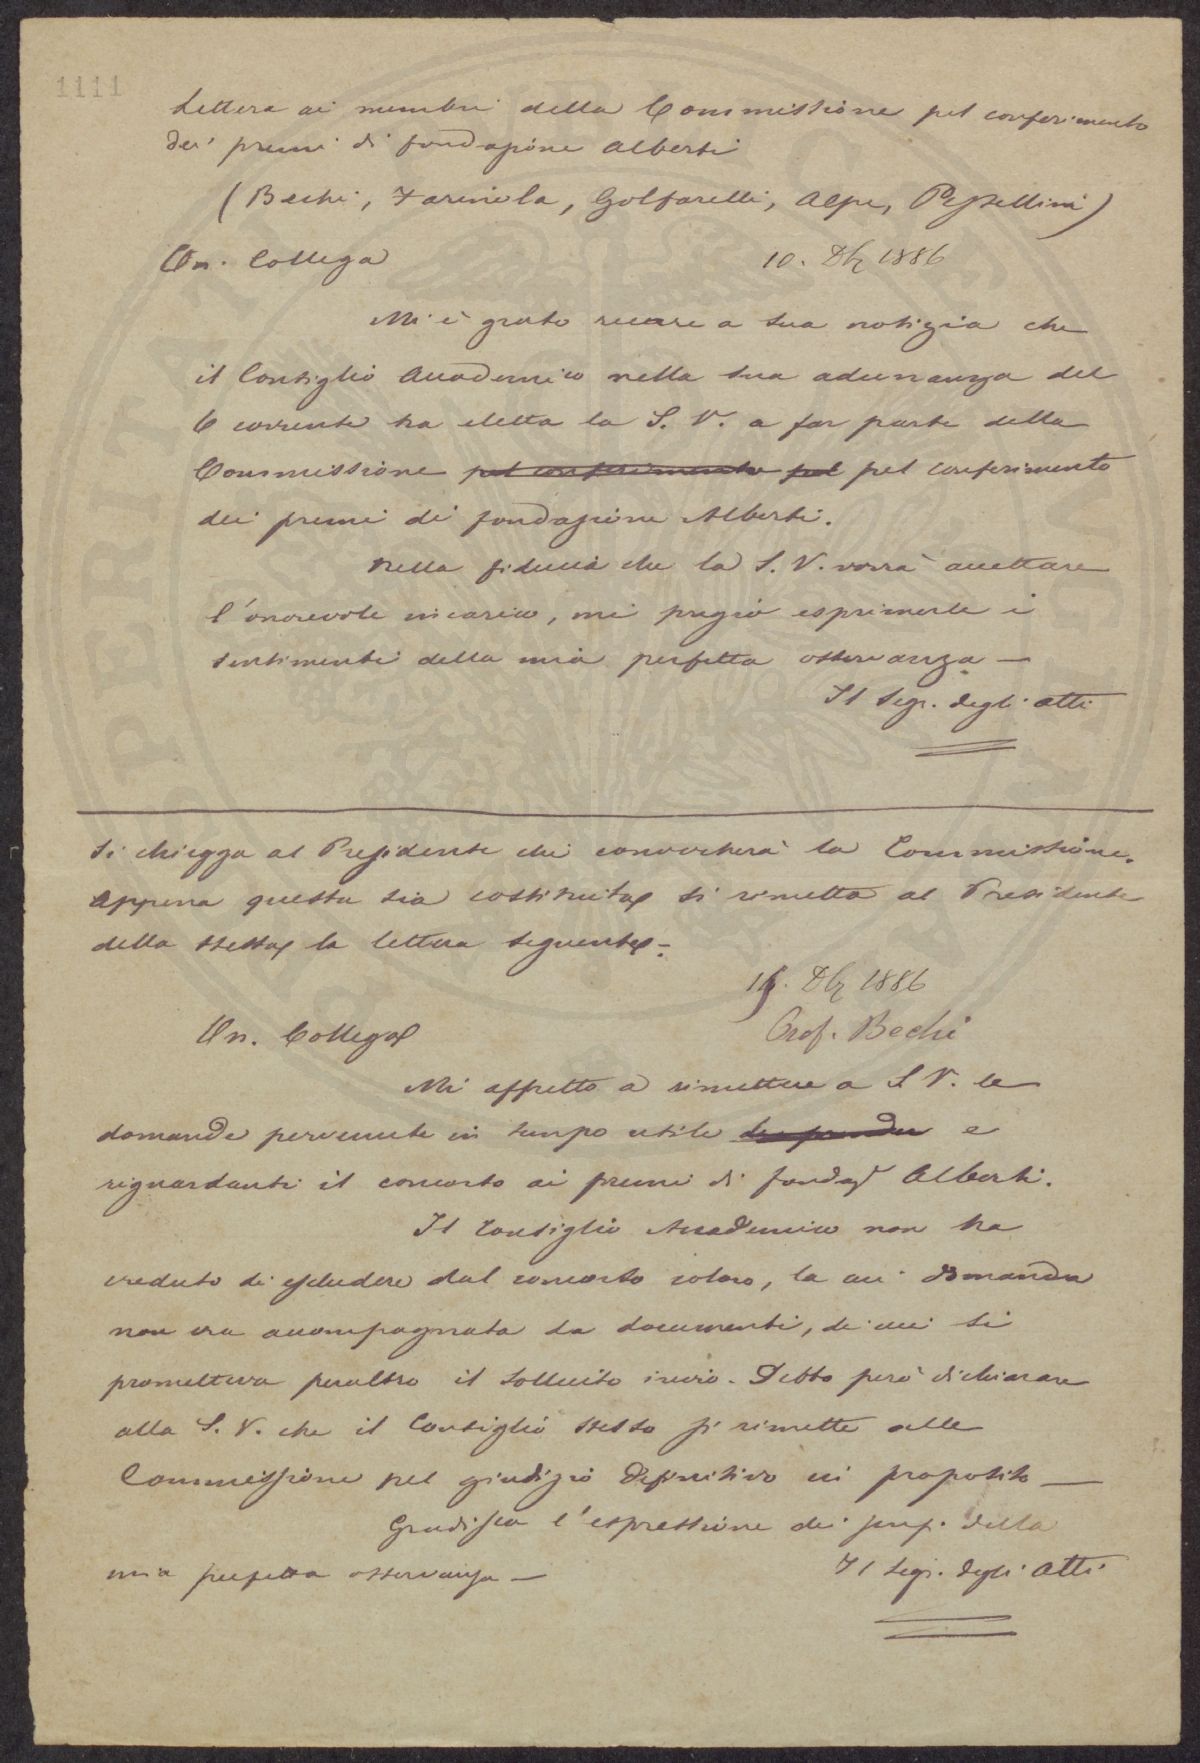 1111
Lettera ai membri della Commissione pel conferimento
dei premi di fondazione Alberti
(Bechi, Farinola, Golfarelli, Alpe, Pestellini)
On. Collega
10. Dbre 1886
Mi è grato recare a sua notizia che
il Consiglio Accademico nella sua adunanza del
6 corrente ha eletta la S. V. a far parte della
Commissione pel conferimento pel pel conferimento
dei premi di fondazione Alberti.
Nella fiducia che la S. V. vorrà accettare
l'onorevole incarico, mi pregio esprimerle i
sentimenti della mia perfetta osservanza —
Il Segr. degli Atti
Si chiegga al Presidente chi convocherà la Commissione.
Appena questa sia costituita si rimetta al Presidente
della stessa la lettera seguente:
Dbre 1886
On. Collega
Prof. Bechi
Mi affretto a rimettere a S. V. le
domande pervenute in tempo utile e
riguardanti il concorso ai premi di fondaz. Alberti.
Il Consiglio Accademico non ha
creduto di escludere dal concorso coloro, la cui domanda
non era accompagnata da documenti, di cui si
prometteva peraltro il sollecito invio. Debbo però dichiarare
alla S. V. che il Consiglio stesso si rimette alla
Commissione pel giudizio definitivo in proposito —
Gradisca l'espressione dei della
mia perfetta osservanza —
Il Segr. degli Atti